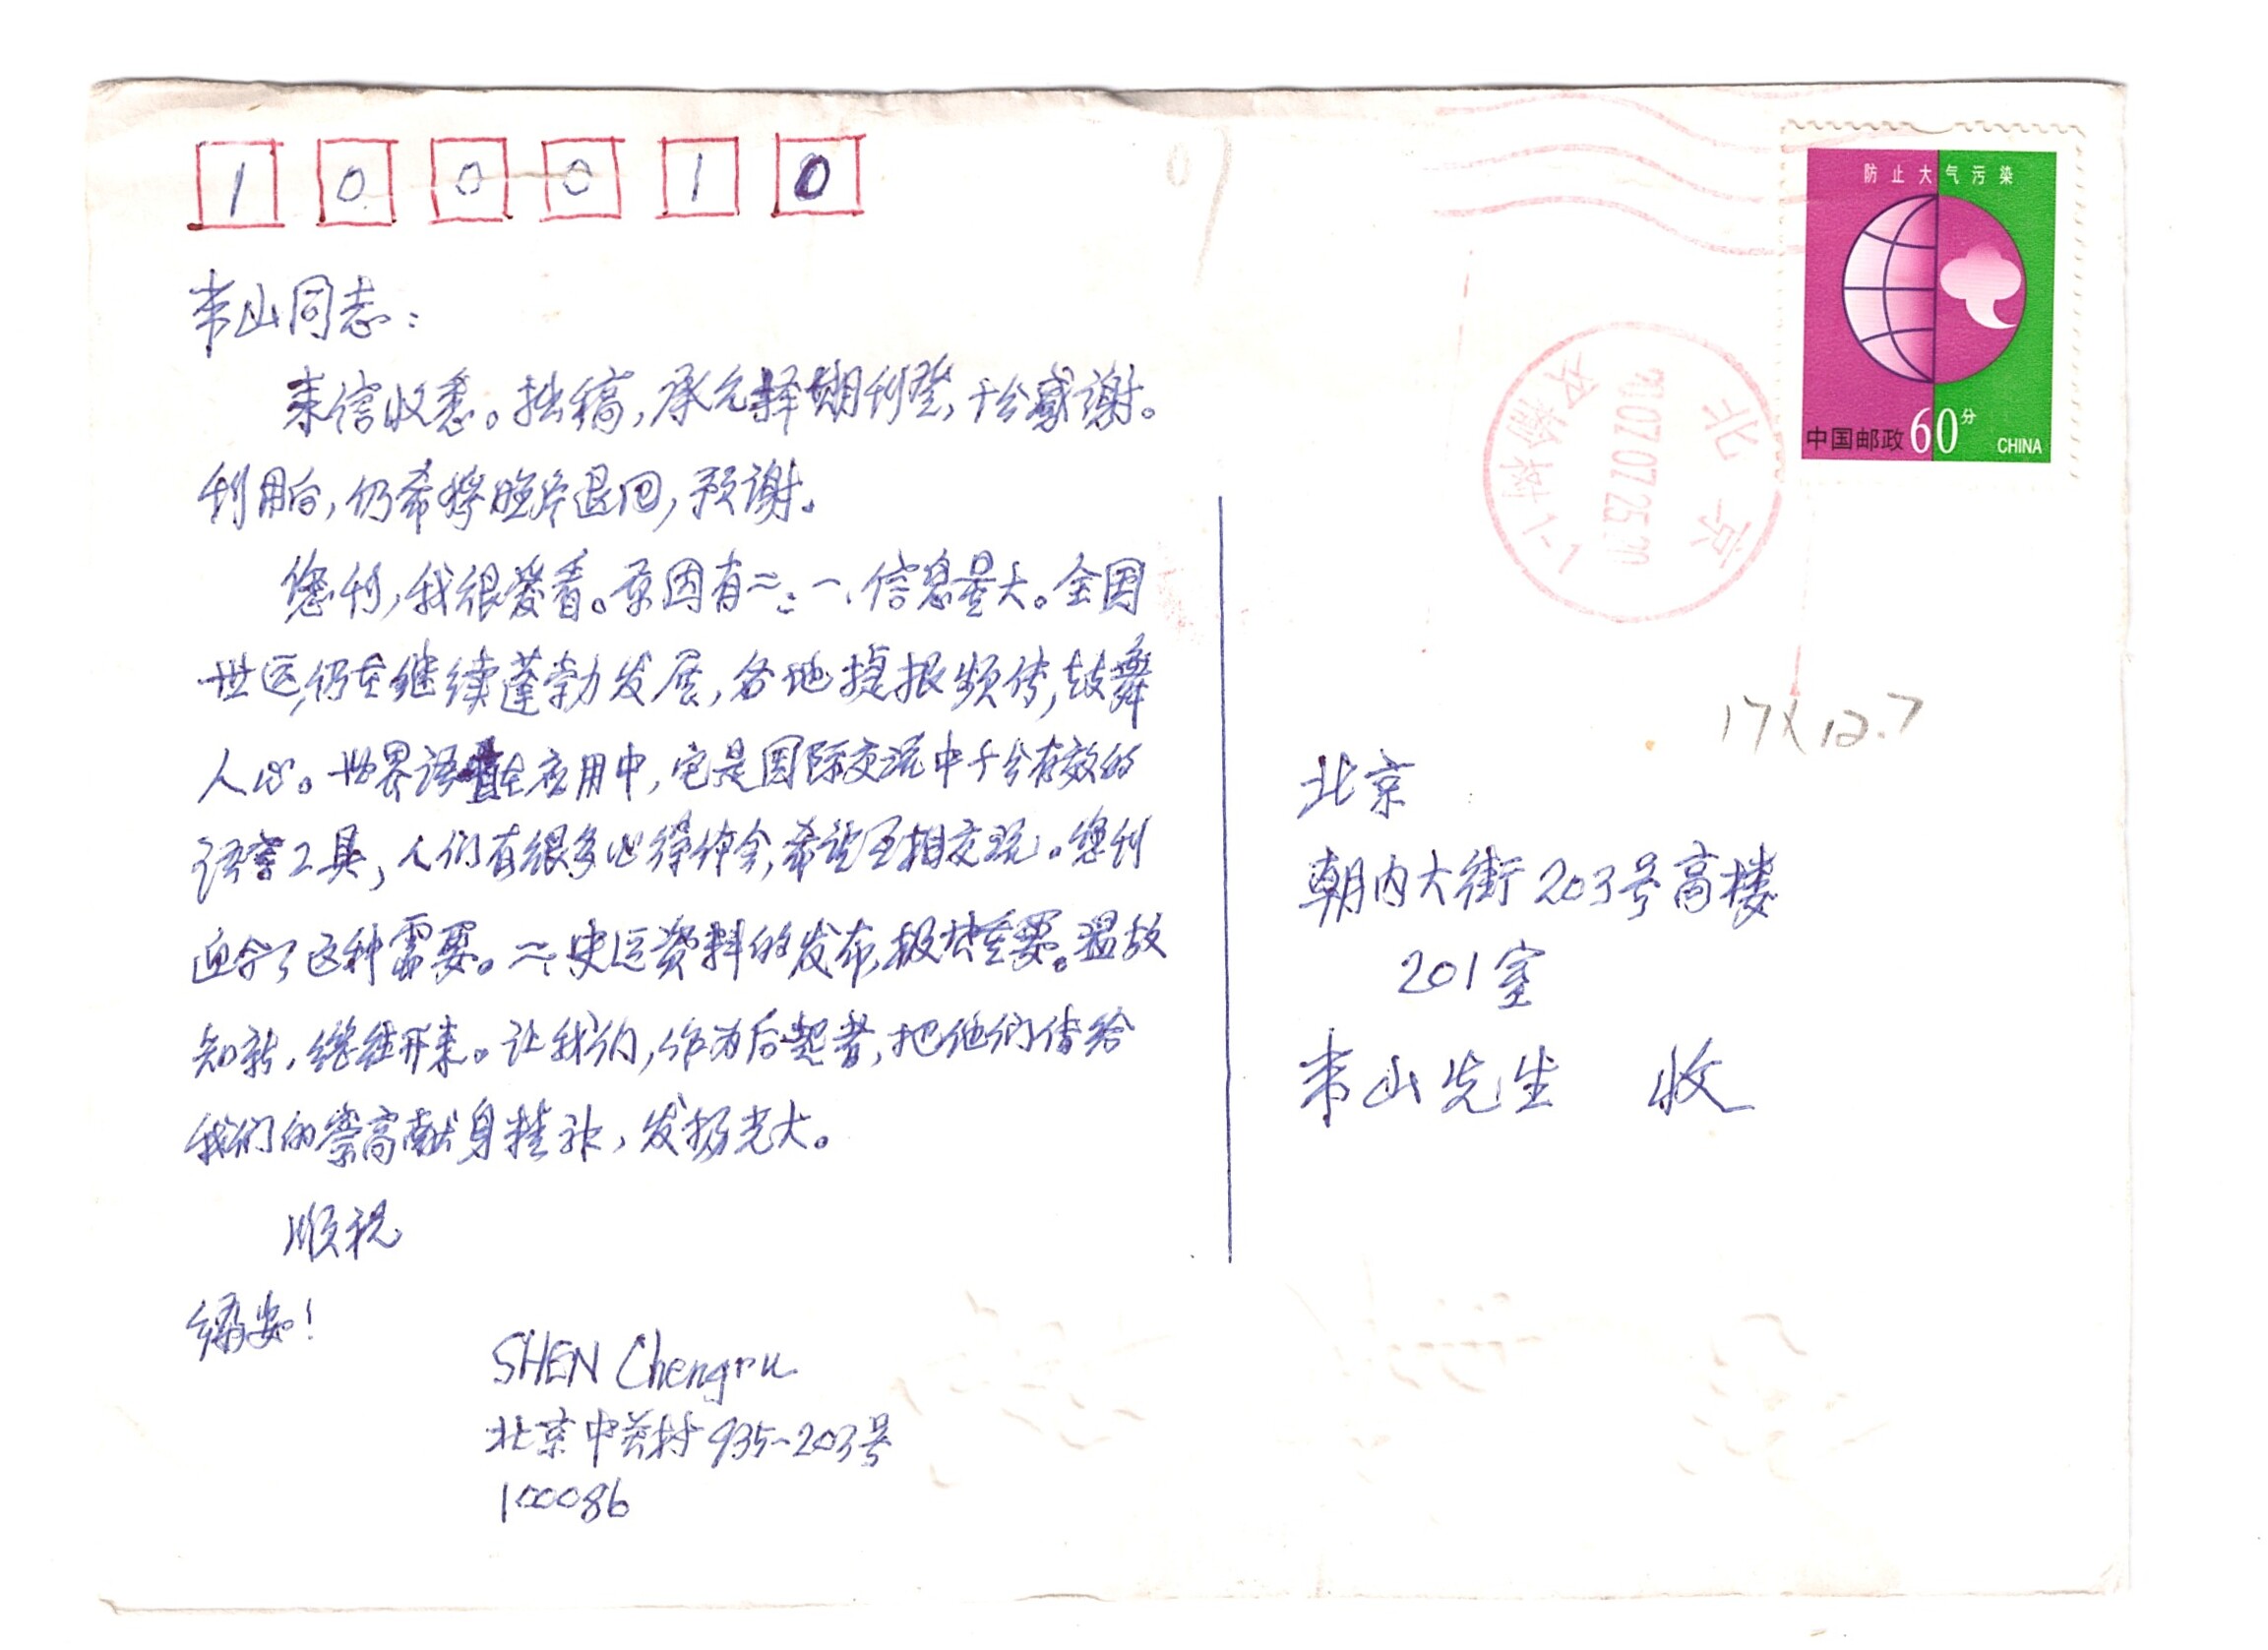 100010
米山同志：
来信收悉。拙稿，承允择期刊登，十分感谢。
刊用后，仍希将照片退回，预谢。
您刊，我很爱看。原因有二：一、信息量大。全国
世运，仍在继续蓬勃发展，各地捷报频传，鼓舞
人心。世界语重在应用中，它是国际交流中十分有效的
语言工具，人们有很多心得体会，希望互相交流。您刊
迎合了这种需要。二、史运资料的发布，极其重要。温故
知新，继往开来。让我们，作为后起者，把他们传给
我们的崇高献身精神，发扬光大。
顺祝
编安！
SHEN Chengru
北京中关村935-203号
100086
防止大气污染
中国邮政 60分 CHINA
北京
17X12.7
北京
朝内大街203号高楼
201室
米山先生 收